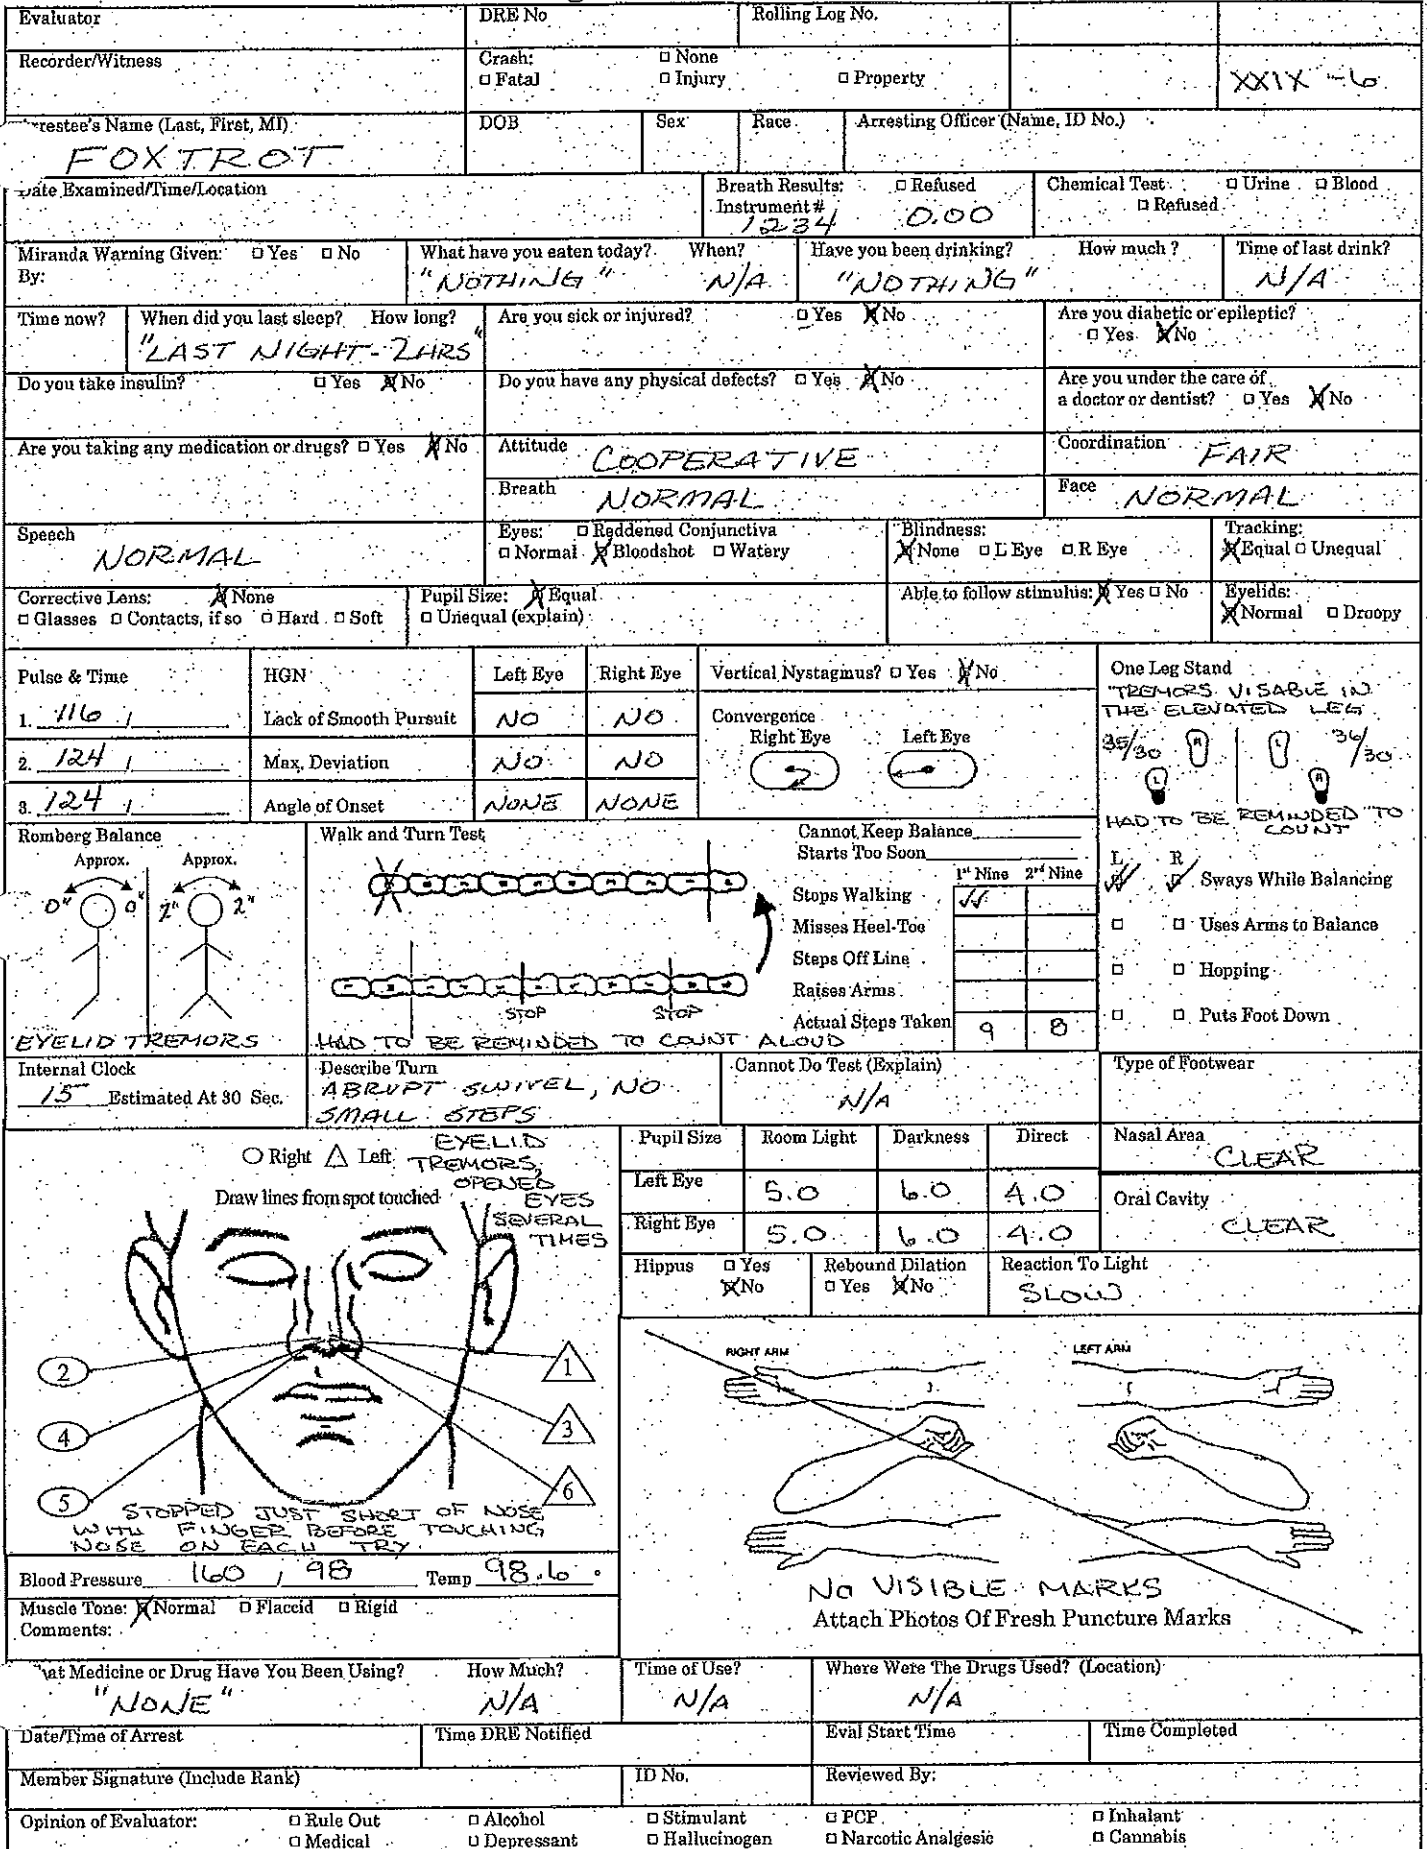 Evaluator
DRE No
Rolling Log No.
Recorder/Witness
Crash: □ None
□ Fatal □ Injury □ Property
XXIX-6
restee's Name (Last, First, MI)
FOXTROT
DOB
Sex
Race
Arresting Officer (Name, ID No.)
Date Examined/Time/Location
Breath Results: □ Refused
Instrument #
1234 0.00
Chemical Test □ Urine □ Blood
□ Refused
Miranda Warning Given: □ Yes □ No
By:
What have you eaten today? When?
"NOTHING" N/A
Have you been drinking? How much ?
"NOTHING"
Time of last drink?
N/A
Time now?
When did you last sleep? How long?
"LAST NIGHT - 2HRS"
Are you sick or injured? □ Yes ☒ No
Are you diabetic or epileptic?
□ Yes ☒ No
Do you take insulin? □ Yes ☒ No
Do you have any physical defects? □ Yes ☒ No
Are you under the care of
a doctor or dentist? □ Yes ☒ No
Are you taking any medication or drugs? □ Yes ☒ No
Attitude COOPERATIVE
Coordination FAIR
Breath NORMAL
Face NORMAL
Speech
NORMAL
Eyes: □ Reddened Conjunctiva
□ Normal ☒ Bloodshot □ Watery
Blindness:
☒ None □ L Eye □ R Eye
Tracking:
☒ Equal □ Unequal
Corrective Lens: ☒ None
□ Glasses □ Contacts, if so □ Hard □ Soft
Pupil Size: ☒ Equal
□ Unequal (explain)
Able to follow stimulus: ☒ Yes □ No
Eyelids:
☒ Normal □ Droopy
Pulse & Time
1. 116 /
2. 124 /
3. 124 /
HGN Left Eye Right Eye
Lack of Smooth Pursuit NO NO
Max. Deviation NO NO
Angle of Onset NONE NONE
Vertical Nystagmus? □ Yes ☒ No
Convergence
Right Eye Left Eye
One Leg Stand
"TREMORS VISABLE IN
THE ELEVATED LEG
35/30 R L 36/30
L R
HAD TO BE REMINDED TO
COUNT
L R
Sways While Balancing
□ □ Uses Arms to Balance
□ □ Hopping
□ □ Puts Foot Down
Romberg Balance
Approx. Approx.
0" 0" 2" 2"
EYELID TREMORS
Walk and Turn Test
STOP STOP
HAD TO BE REMINDED TO COUNT ALOUD
Cannot Keep Balance
Starts Too Soon
1st Nine 2nd Nine
Stops Walking ✓✓
Misses Heel-Toe
Steps Off Line
Raises Arms
Actual Steps Taken 9 8
Internal Clock
15 Estimated At 30 Sec.
Describe Turn
ABRUPT SWIVEL, NO
SMALL STEPS
Cannot Do Test (Explain)
N/A
Type of Footwear
○ Right △ Left
EYELID
TREMORS,
OPENED
EYES
SEVERAL
TIMES
Draw lines from spot touched
2 1
4 3
5 6
STOPPED JUST SHORT OF NOSE
WITH FINGER BEFORE TOUCHING
NOSE ON EACH TRY.
Pupil Size Room Light Darkness Direct
Left Eye 5.0 6.0 4.0
Right Eye 5.0 6.0 4.0
Nasal Area
CLEAR
Oral Cavity
CLEAR
Hippus □ Yes
☒ No
Rebound Dilation
□ Yes ☒ No
Reaction To Light
SLOW
RIGHT ARM LEFT ARM
NO VISIBLE MARKS
Attach Photos Of Fresh Puncture Marks
Blood Pressure 160 / 98 Temp 98.6 °
Muscle Tone: ☒ Normal □ Flaccid □ Rigid
Comments:
at Medicine or Drug Have You Been Using? How Much?
"NONE" N/A
Time of Use?
N/A
Where Were The Drugs Used? (Location)
N/A
Date/Time of Arrest
Time DRE Notified
Eval Start Time
Time Completed
Member Signature (Include Rank)
ID No.
Reviewed By:
Opinion of Evaluator: □ Rule Out □ Alcohol □ Stimulant □ PCP □ Inhalant
□ Medical □ Depressant □ Hallucinogen □ Narcotic Analgesic □ Cannabis